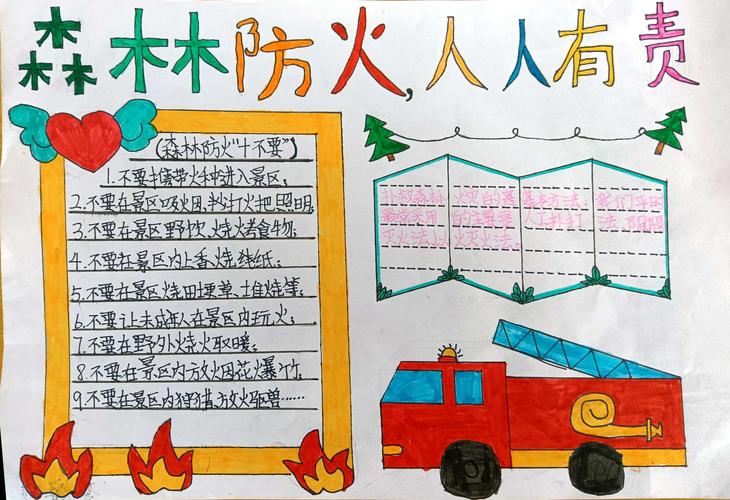 森林防火,人人有责
(森林防火"十不要")
1.不要携带火种进入景区;
2.不要在景区吸烟,执打火把照明;
3.不要在景区野炊、烧火烤食物;
4.不要在景区内上香烧纸;
5.不要在景区烧田埂草、堆烧等;
6.不要让未成年人在景区内玩火;
7.不要在野外烧火取暖;
8.不要在景区内放烟花爆竹;
9.不要在景区内狩猎,放火驱兽……
扑救森林火灾的基本方法:我们平时
最常采用的主要是人工扑打法、阻隔
灭火法、以火灭火法。